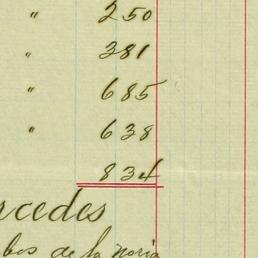 " 250
" 381
" 685
" 638
834
rcedes
bos de la noria